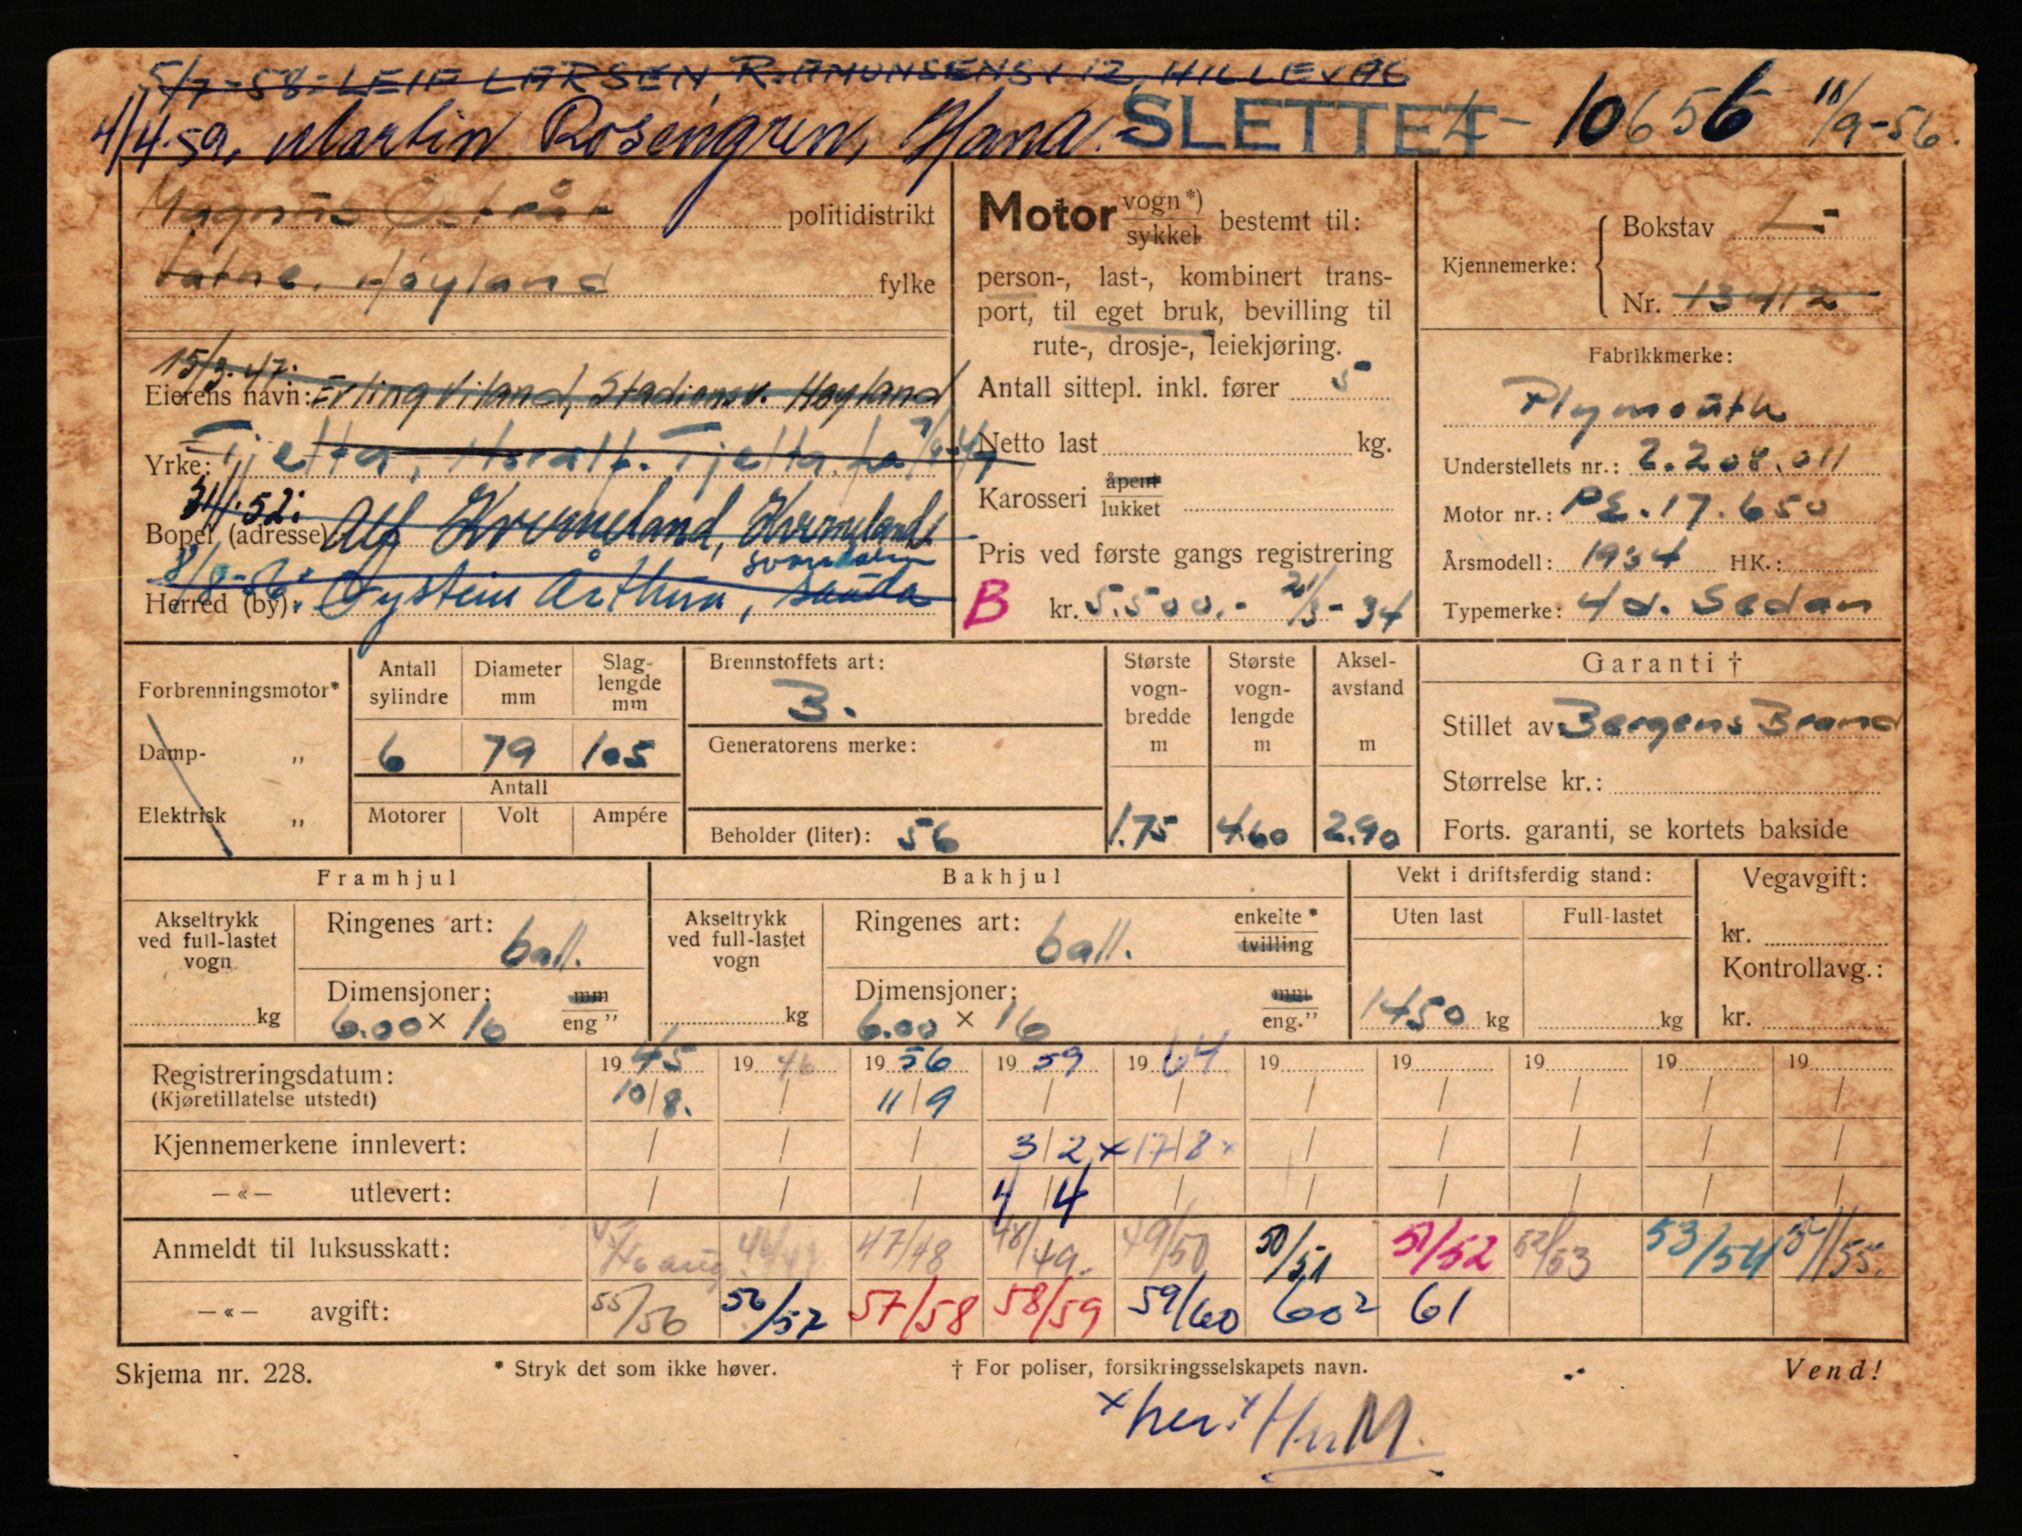 5/7-58: LEIF LARSEN, R. AMUNSENSV 12, HILLEVÅG
4/4.59, Martin Rosengren, Hana. SLETTET L- 10656 11/9-56.
Magnus Østråt politidistrikt
Vatne. Høyland fylke
15/3.47.
Eierens navn: Erling Viland, Stadionsv. Høyland
Yrke: Tjelta,
31/1.52:
Bopel (adresse) Alf Kverneland, Kverneland
Svandalen
8/8-56:
Herred (by): Øystein Arthun, Sauda
Motor vogn*) sykkel bestemt til:
person-, last-, kombinert trans-
port, til eget bruk, bevilling til
rute-, drosje-, leiekjøring.
Antall sittepl. inkl. fører 5
Netto last kg.
Karosseri åpent lukket
Pris ved første gangs registrering
B kr. 5.500.- 21/3-34
Kjennemerke: Bokstav L-
Nr. 13412
Fabrikkmerke:
Plymouth
Understellets nr.: 2.208.011
Motor nr.: PE.17.650
Årsmodell: 1934 HK.:
Typemerke: 4d. Sedan
Forbrenningsmotor*
Damp- „
Elektrisk „
Antall sylindre Diameter mm Slag-lengde mm
6 79 105
Antall
Motorer Volt Ampére
Brennstoffets art:
B.
Generatorens merke:
Beholder (liter): 56
Største vogn-bredde m Største vogn-lengde m Aksel-avstand m
1.75 4.60 2.90
Garanti †
Stillet av Bergens Brand
Størrelse kr.:
Forts. garanti, se kortets bakside
Framhjul
Akseltrykk ved full-lastet vogn
kg
Ringenes art: ball.
Dimensjoner: mm
6.00 × 16 eng ”
Bakhjul
Akseltrykk ved full-lastet vogn
kg
Ringenes art: ball. enkelte * tvilling
Dimensjoner: mm
6.00 × 16 eng.”
Vekt i driftsferdig stand:
Uten last Full-lastet
1450 kg kg
Vegavgift:
kr.
Kontrollavg.:
kr.
Registreringsdatum: 1945 1946 1956 1959 1964 19 19 19 19 19
(Kjøretillatelse utstedt) 10/8. / 11/9 / / / / / / /
Kjennemerkene innlevert: / / / 3/2 x 17/8 x / / / / /
—«— utlevert: / / / 4/4 / / / / / /
Anmeldt til luksusskatt: 47/48 48/49. 49/50 50/51 51/52 52/53 53/54 54/55.
—«— avgift: 55/56 56/57 57/58 58/59 59/60 60² 61
Skjema nr. 228. * Stryk det som ikke høver. † For poliser, forsikringsselskapets navn. Vend!